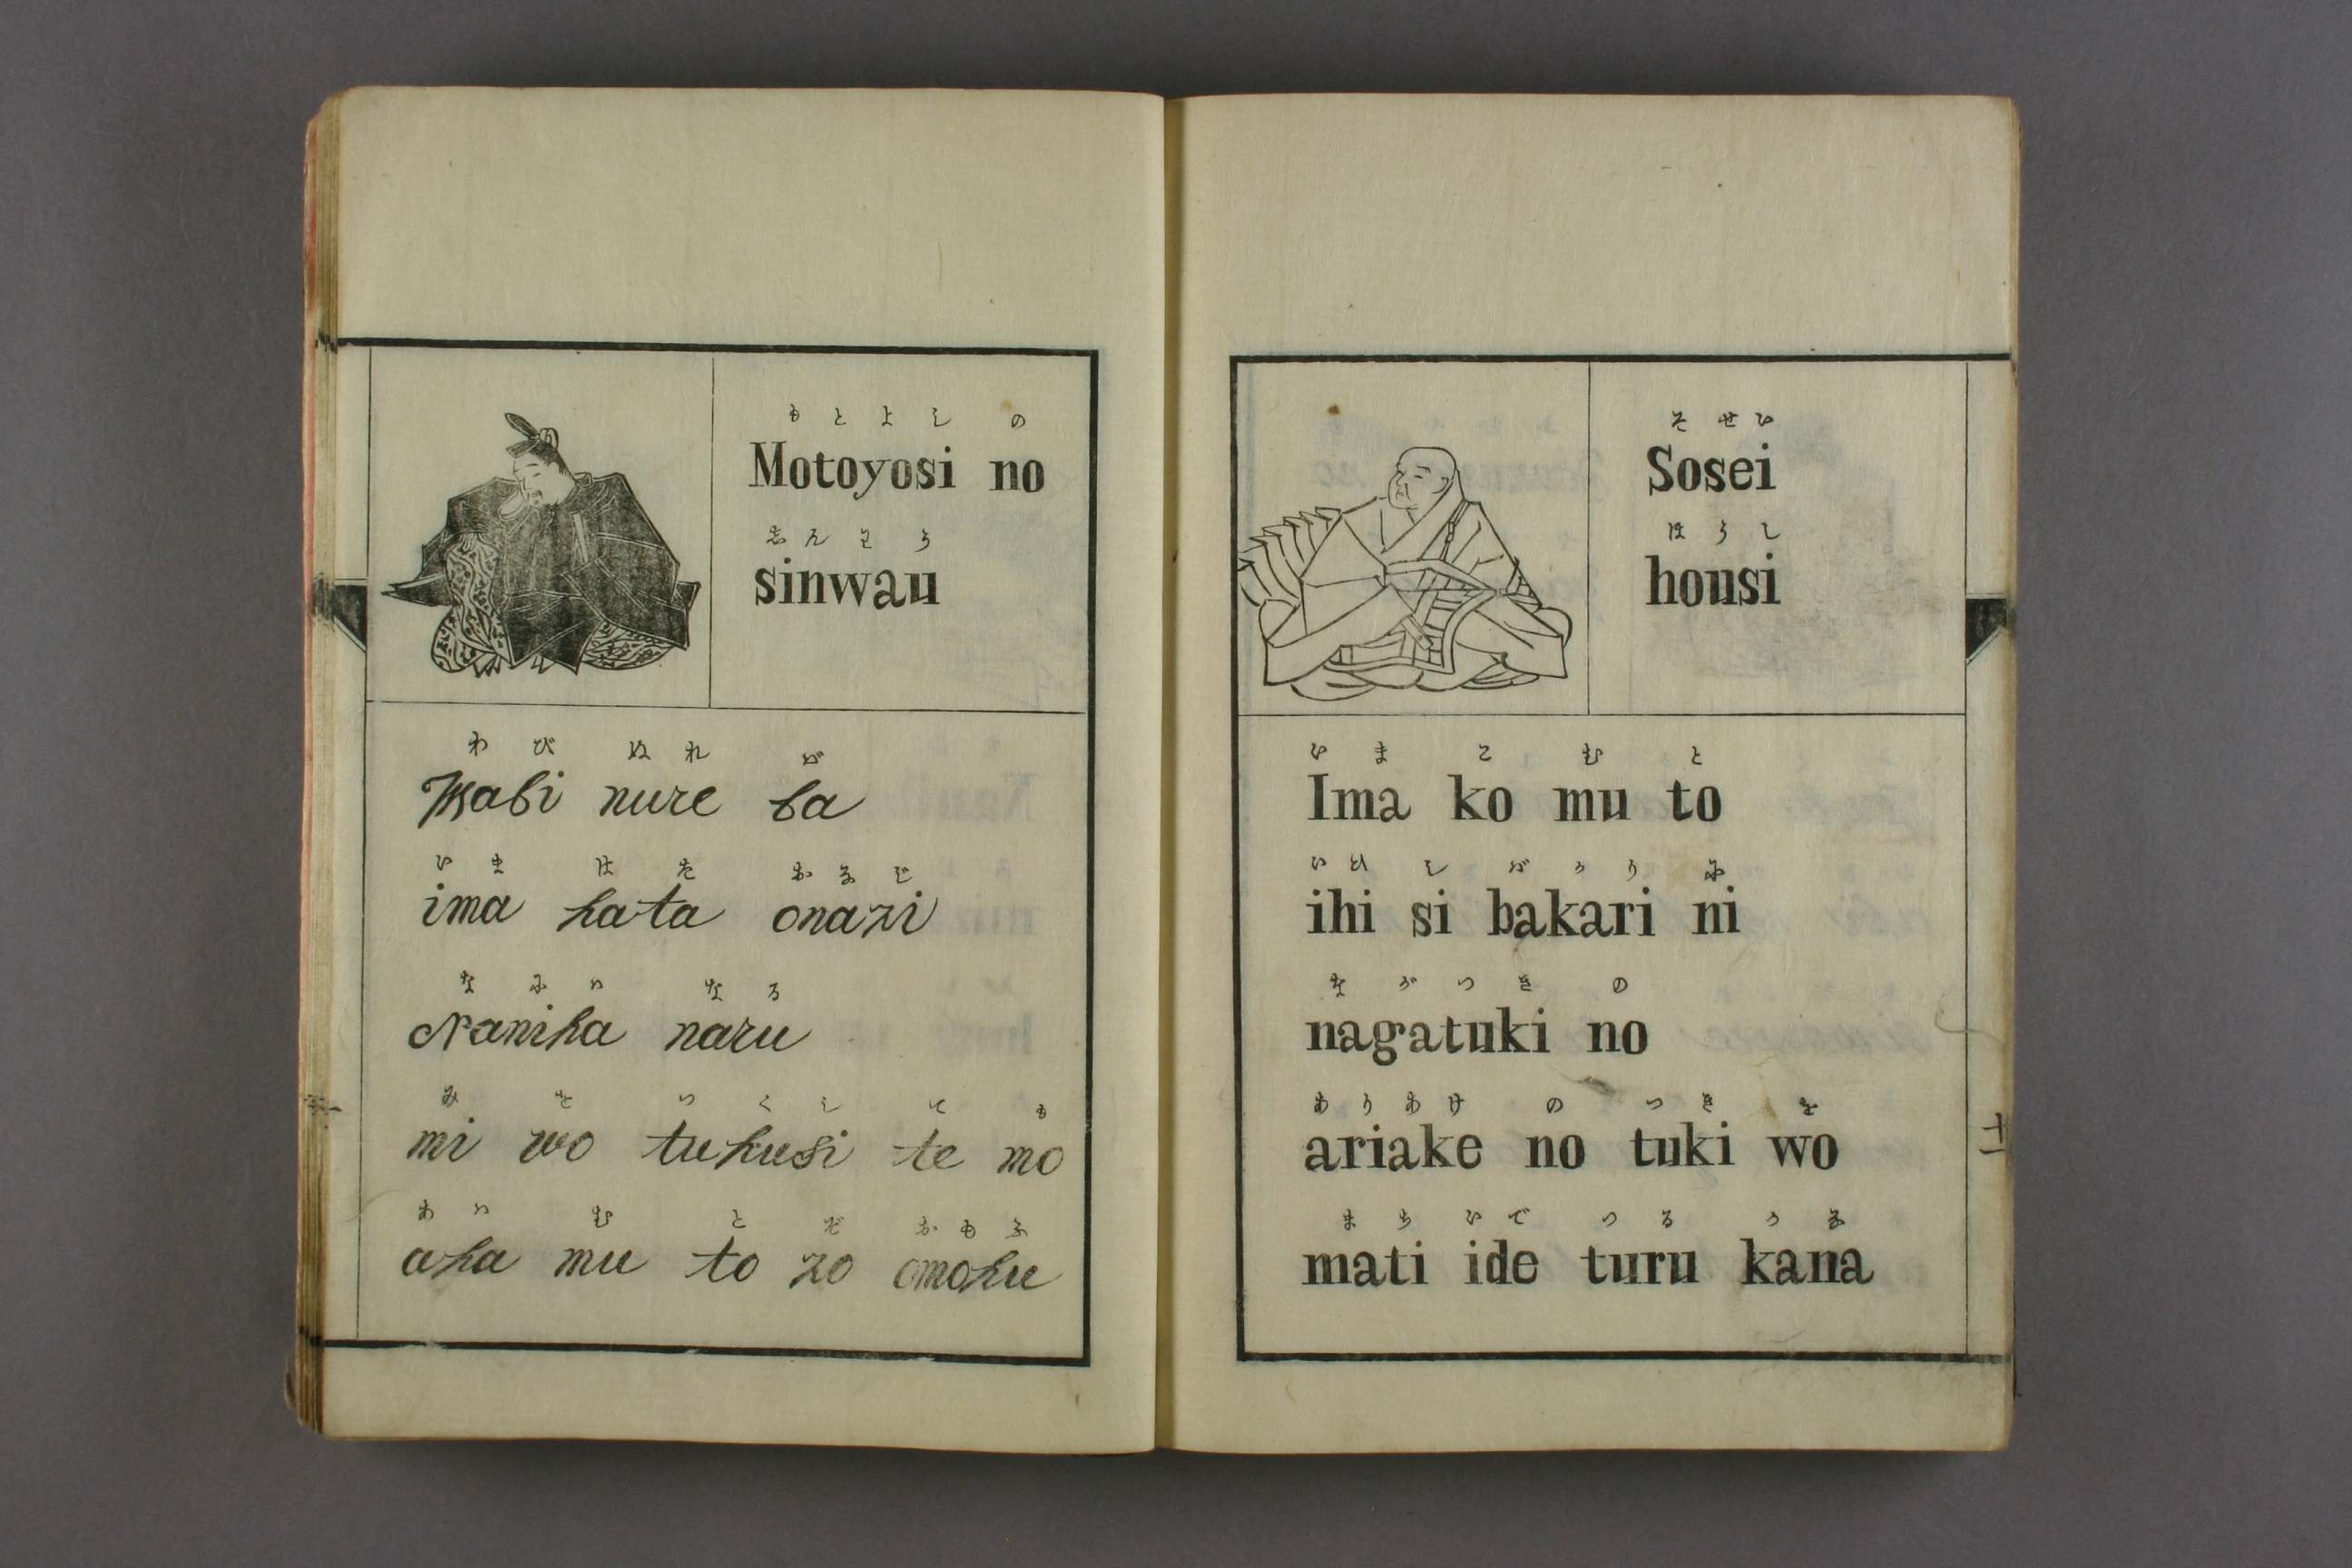 もとよしの
Motoyosi no
しんわう
sinwau
わびぬれば
Wabi nure ba
いまはたおなじ
ima hata onazi
なにはなる
Naniha naru
みをつくしても
mi wo tukusi te mo
あはむとぞおもふ
aha mu to zo omohu
そせい
Sosei
ほうし
housi
いまこむと
Ima ko mu to
いひしばかりに
ihi si bakari ni
ながつきの
nagatuki no
ありあけのつきを
ariake no tuki wo
まちいでつるかな
mati ide turu kana
十一